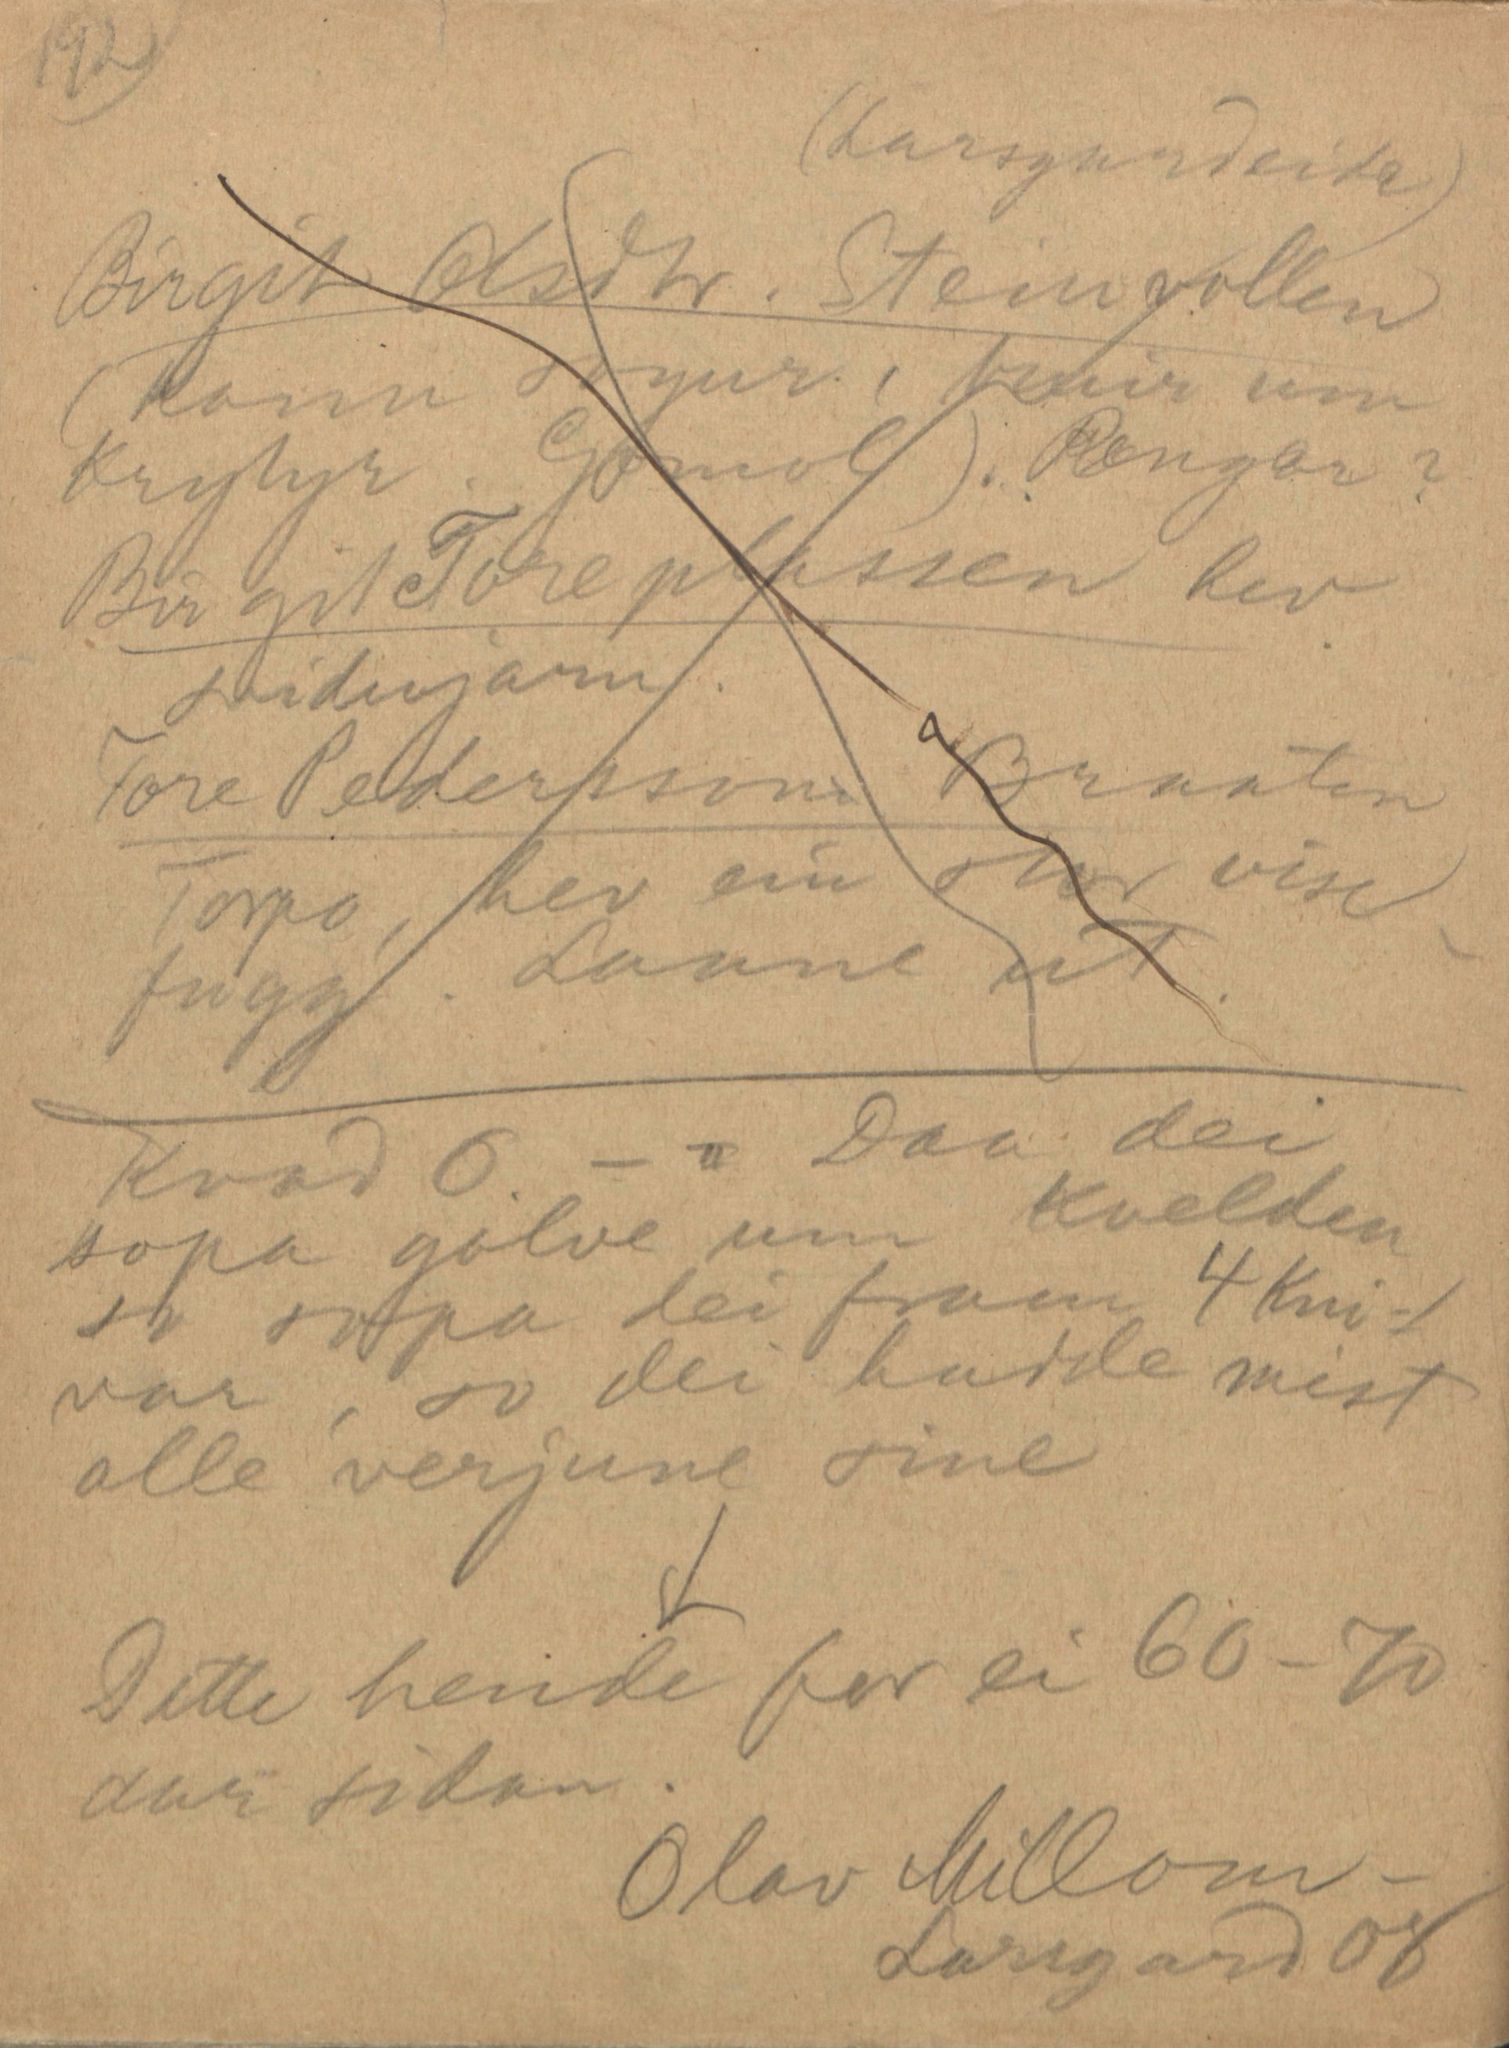 192)
(Larsgardeide)
Birgit Olsdtr. Steinvollen
(kann sogur, um
Krytyr. Gomol). Pengar?
Birgit Toreplassen hev
svidujarn.
Tore Pederson Braaten
Torpo, hev ein stor vise-
fugg. Laane ut.
Kvad 6. – " Daa dei
sopa golve um kvelden
so sopa dei fram 4 kni-
var, so dei hadde mist
alle verjune sine
Dette hende for ei 60–70
aar sidan.
Olav Millom-
Larsgard Ol